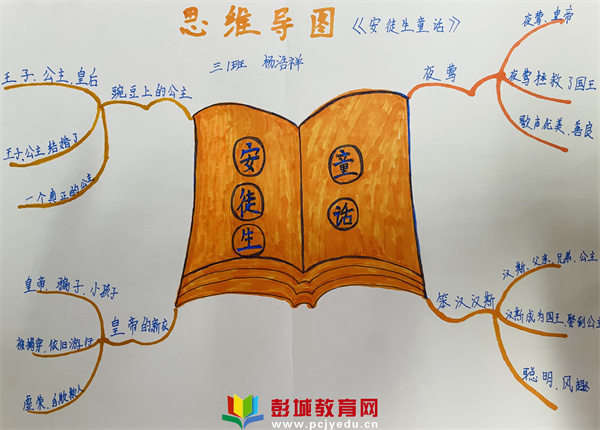 思维导图《安徒生童话》
三1班 杨浩祥
豌豆上的公主
王子、公主、皇后
王子、公主结婚了
一个真正的公主
夜莺
夜莺、皇帝
夜莺拯救了国王
歌声优美、善良
安徒生
童话
皇帝的新衣
皇帝、骗子、小孩子
被揭穿,依旧游行
虚荣、自欺欺人
笨汉汉斯
汉斯、父亲、兄弟、公主
汉斯成为国王,娶到公主
聪明、风趣
彭城教育网
www.pcjyedu.cn